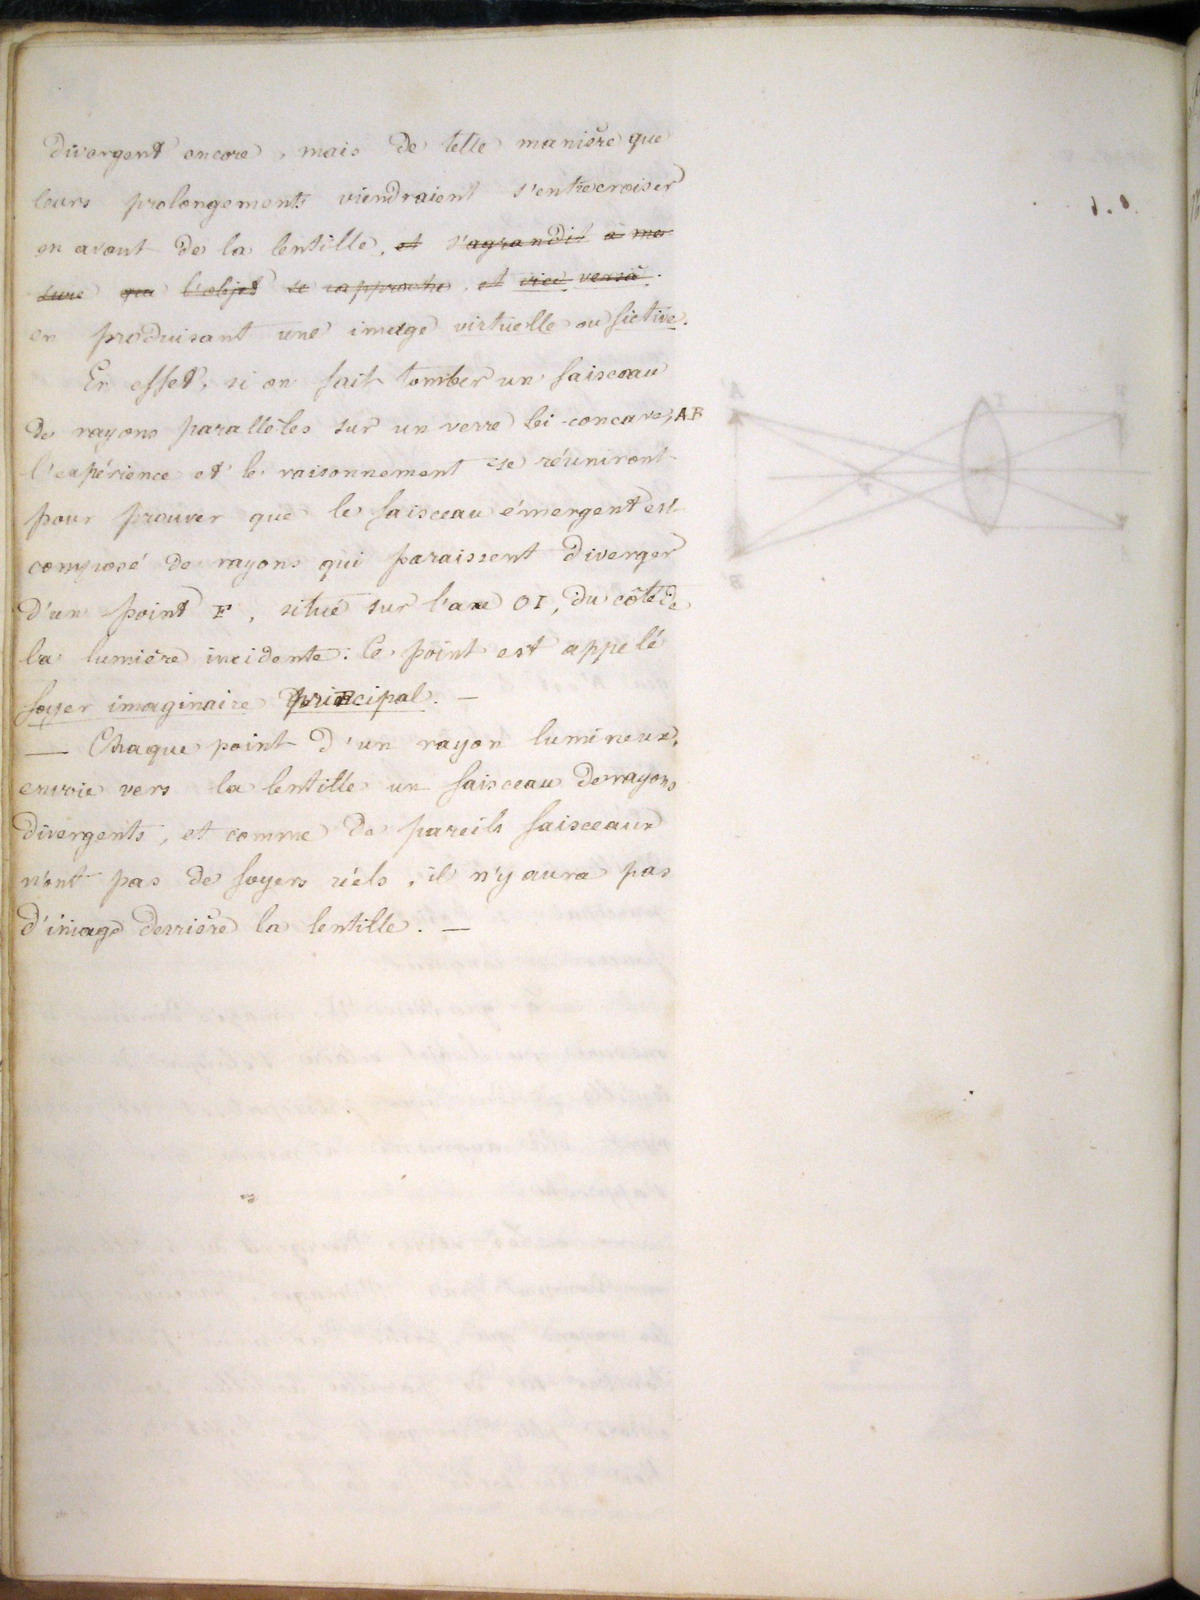 divergent encore, mais de telle manière que
leurs prolongements viendraient s'entrecroiser
en avant de la lentille, et s'agrandit à me
sure que l'objet se rapproche, et vice versâ.
en produisant une image virtuelle ou fictive.
En effet, si on fait tomber un faisceau
de rayons parallèles sur un verre bi-concave, AB
l'expérience et le raisonnement se réuniront
pour prouver que le faisceau émergent est
composé de rayons qui paraissent diverger
d'un point F, situé sur l'axe OI, du côté de
la lumière incidente: Ce point est appelé
foyer imaginaire principal. —
— Chaque point d'un rayon lumineux,
envoie vers la lentille un faisceau de rayons
divergents, et comme de pareils faisceaux
n'ont pas de foyers réels, il n'y aura pas
d'image derrière la lentille. —